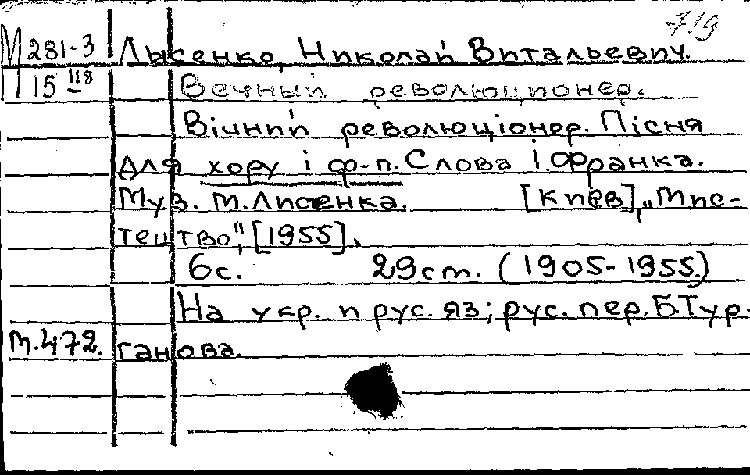 719
М 281-3 Лысенко, Николай Витальевич.
П 15 118 Вечный революционер.
Вічний революціонер. Пісня
для хору і ф-п. Слова І. Франка.
Муз. М. Лисенка. [Київ], „Мис-
тецтво", [1955].
6с. 29см. (1905-1955.)
На укр. и рус. яз; рус. пер. Б. Тур-
М.472. ганова.